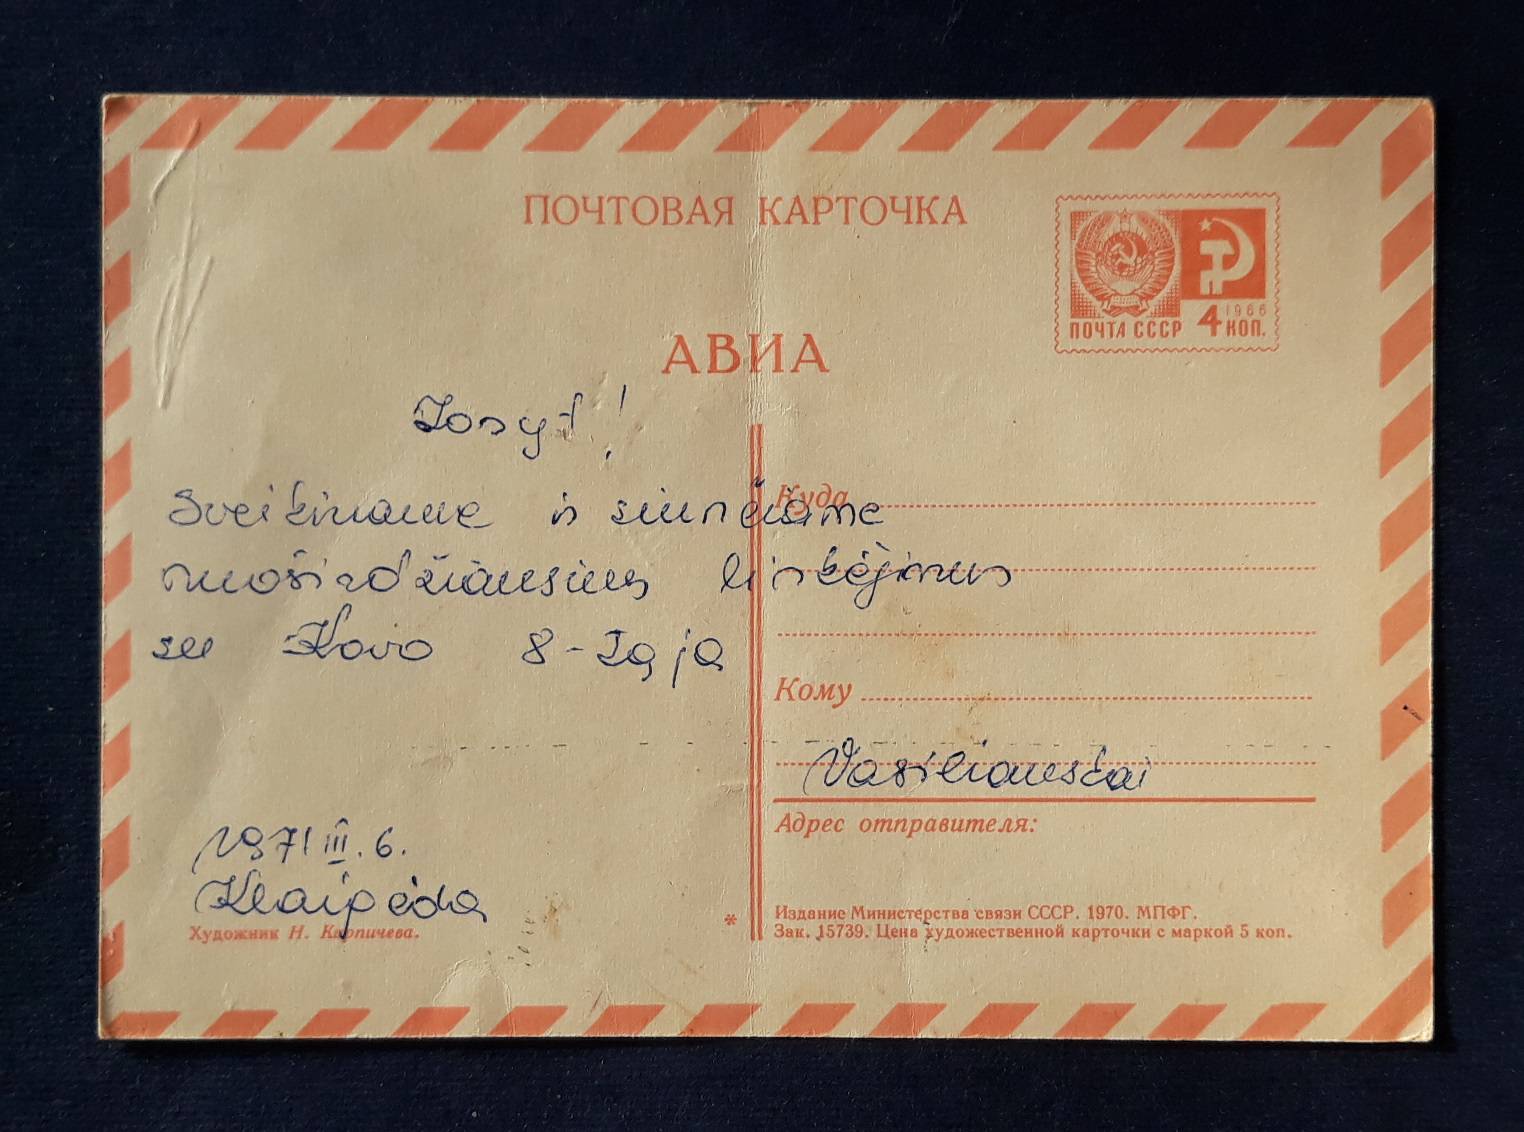 ПОЧТОВАЯ КАРТОЧКА
1966
ПОЧТА СССР 4 КОП.
АВИА
Sveikiname ir siunčiame
nuoširdžiausius linkėjimus
su Kovo 8-Ąja
1971 III. 6.
Klaipėda
Художник Н. Карпичева.
*
Куда
Кому
Vasiliauskai
Адрес отправителя:
Издание Министерства связи СССР. 1970. МПФГ.
Зак. 15739. Цена художественной карточки с маркой 5 коп.